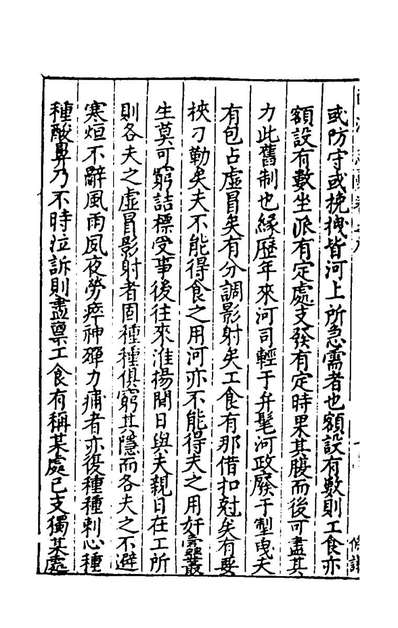 或防守或挽拽皆河上所急需者也額設有數則工食亦
額設有數坐派有定處支發有定時果其腹而後可盡其
力此舊制也緣歷年來河司輕于弁髦河政廢于掣曳夫
有包占虛冒矣有分調影射矣工食有那借扣尅矣有要
挾刁勒矣夫不能得食之用河亦不能得夫之用奸蠹叢
生莫可窮詰標受事後往來淮揚間日與夫親日在工所
則各夫之虛冒影射者固種種俱窮其隱而各夫之不避
寒烜不辭風雨夙夜勞瘁神殫力痡者亦復種種刺心種
種酸鼻乃不時泣訴則盡稟工食有稱某處已支獨某處
條議